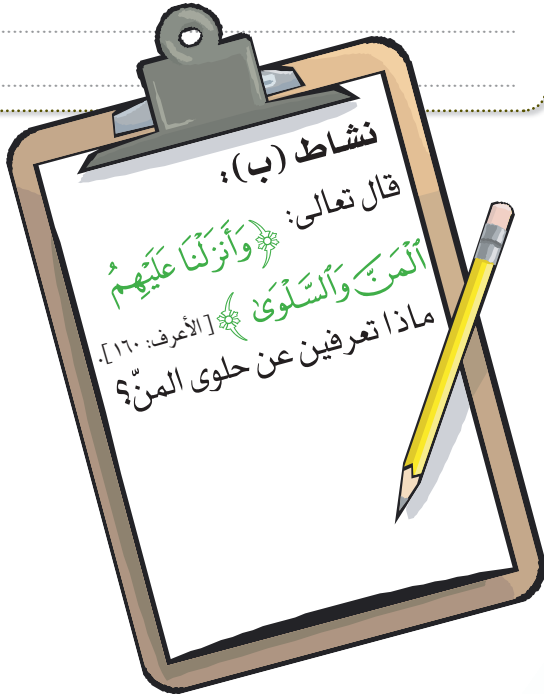 نشاط (ب):
قال تعالى:
﴿وَأَنزَلْنَا عَلَيْهِمُ
ٱلْمَنَّ وَٱلسَّلْوَىٰ﴾ [الأعرف: ١٦٠].
ماذا تعرفين عن حلوى المنّ؟